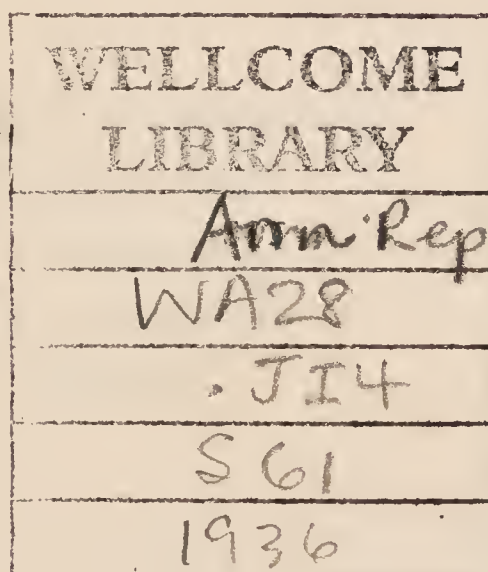 WELLCOME
LIBRARY
Ann. Rep
WA28
.JI4
S61
1936